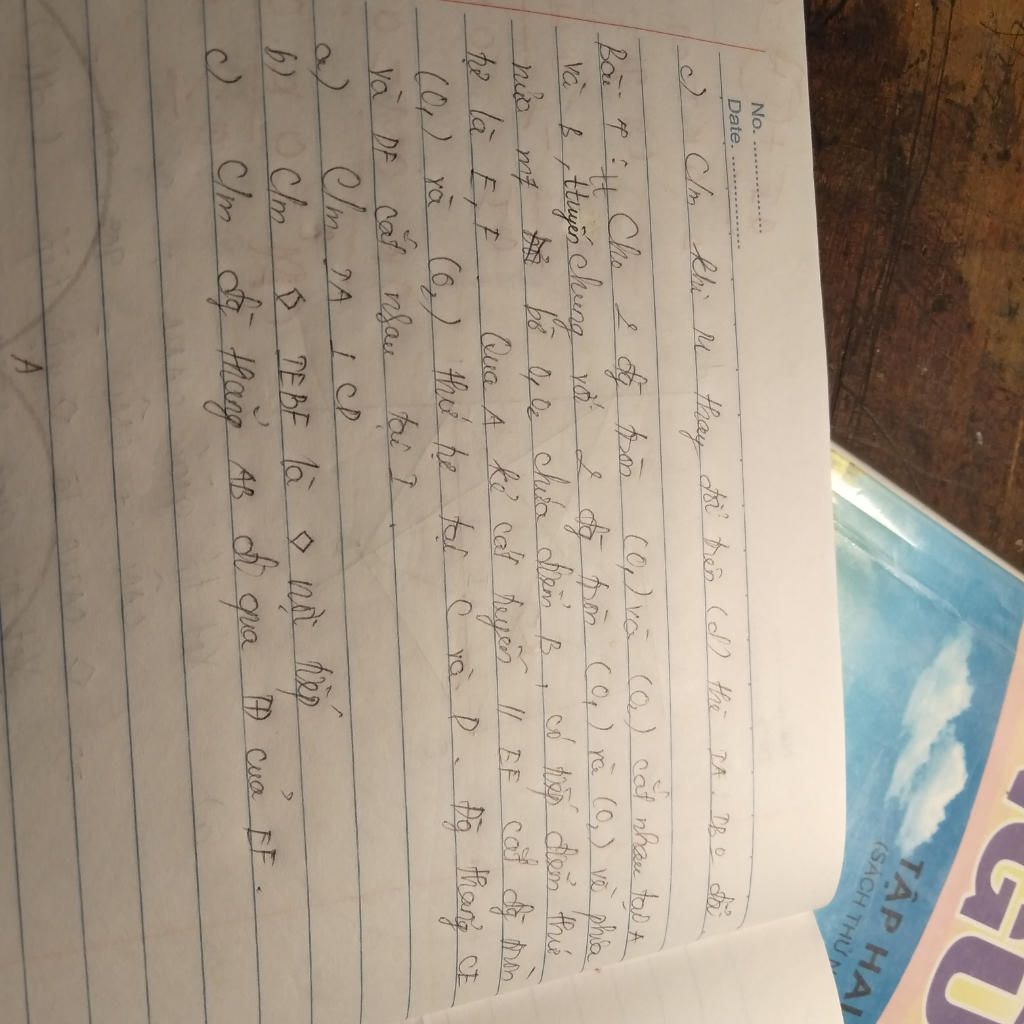 No. ....................
Date ....................
c) C/m khi M thay đổi trên (d) thì IA. IB o đổi
Bài 4: Cho 2 đg tròn (O₁) và (O₂) cắt nhau tại A
và B, tuyến chung với 2 đg tròn (O₁) và (O₂) về phía
nửa mf bờ O₁O₂ chứa điểm B, có tiếp điểm thứ
tự là E, F. Qua A kẻ cát tuyến // EF cắt đg tròn
(O₁) và (O₂) thứ tự tại C và D. Đg thẳng CE
và DF cắt nhau tại I.
a) C/m IA ⊥ CD
b) C/m ◇ IEBF là ◇ nội tiếp
c) C/m đg thẳng AB đi qua TĐ của EF.
A
TẬP HAI
(SÁCH THỬ N